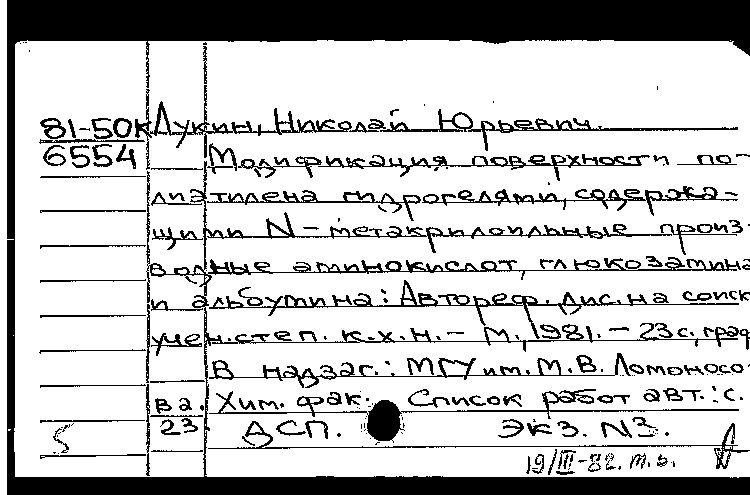 81-50к Лукин, Николай Юрьевич.
6554 Модификация поверхности по-
лиэтилена гидрогелями, содержа-
щими N-метакрилоильные произ-
водные аминокислот, глюкозамина
и альбумина: Автореф. дис. на соиск.
учен. степ. к.х.н. - М., 1981. - 23 с., граф
В надзаг.: МГУ им. М.В. Ломоносо-
ва. Хим. фак. Список работ авт.: с.
5 23. ДСП. ЭКЗ. N3.
19/III-82. м.в.